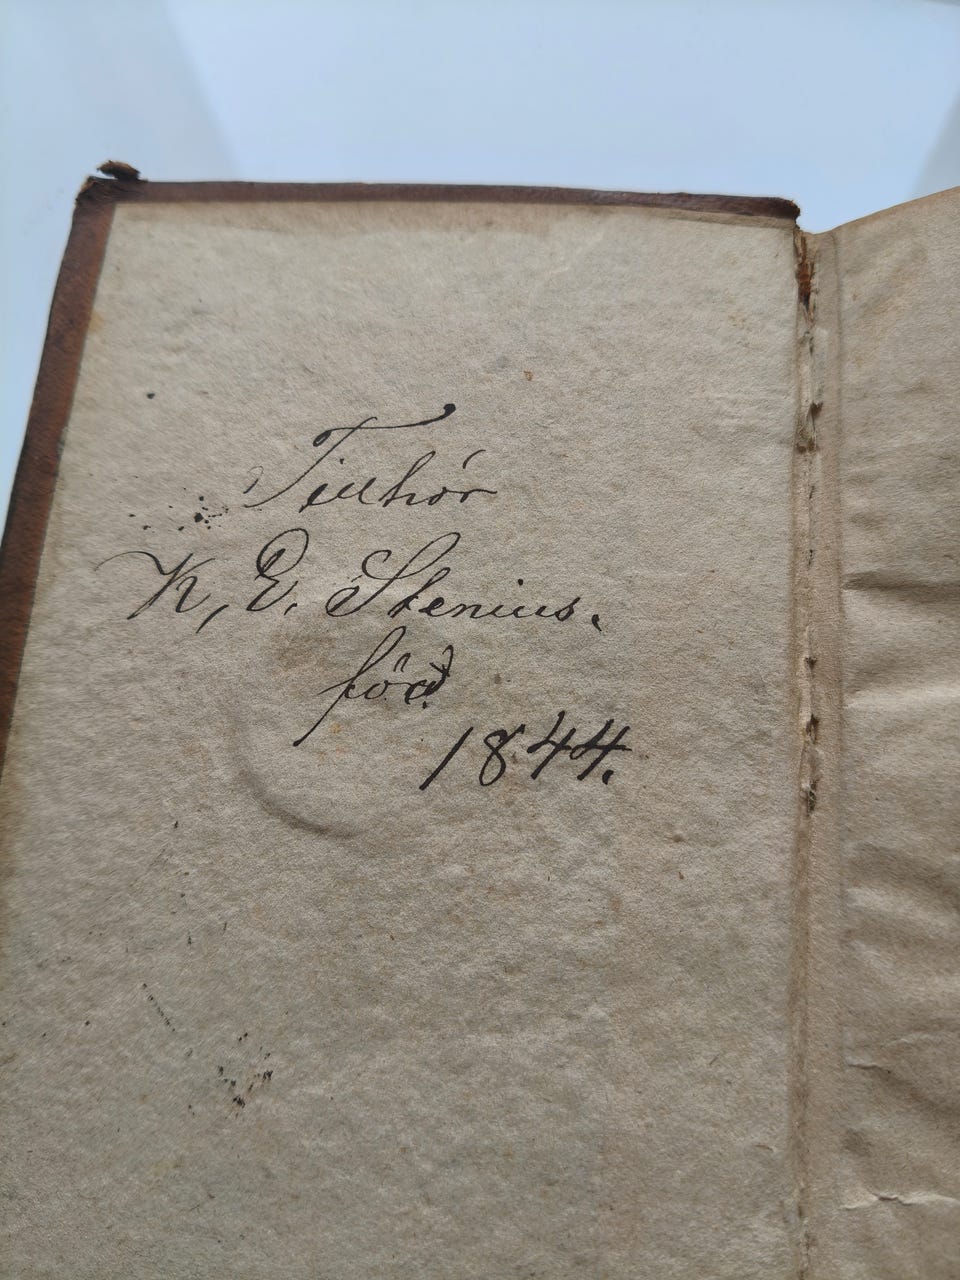 Tillhör
K, E. Stenius.
född
1844.